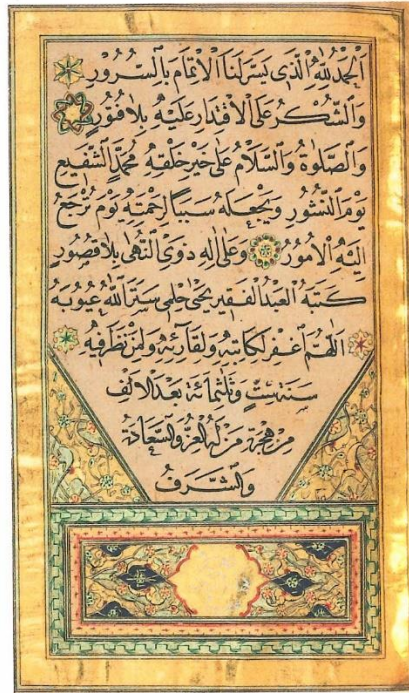 اَلْحَمْدُ لِلّٰهِ الَّذٖى يَسَّرَ لَنَا الْاِتْمَامَ بِالسُّرُورِ
وَالشُّكْرُ عَلَى الْاِقْتِدَارِ عَلَيْهِ بِلَا فُتُورٍ
وَالصَّلٰوةُ وَالسَّلَامُ عَلٰى خَيْرِ خَلْقِهٖ مُحَمَّدٍ الشَّفٖيعِ
يَوْمَ النُّشُورِ وَيَجْعَلُهُ سَبَبًا لِرَحْمَتِهٖ يَوْمَ تُرْجَعُ
اِلَيْهِ الْاُمُورُ وَعَلٰى اٰلِهٖ ذَوِى النُّهٰى بِلَا قُصُورٍ
كَتَبَهُ الْعَبْدُ الْفَقٖيرُ يَحْيٰى حِلْمٖى سَتَرَ اللّٰهُ عُيُوبَهُ
اَللّٰهُمَّ اغْفِرْ لِكَاتِبِهٖ وَلِقَارِئِهٖ وَلِمَنْ نَظَرَ فٖيهِ
سَنَةَ سِتٍّ وَثَلٰثِمِائَةٍ بَعْدَ الْاَلْفِ
مِنْ هِجْرَةِ مَنْ لَهُ الْعِزُّ وَالسَّعَادَةُ
وَالشَّرَفُ